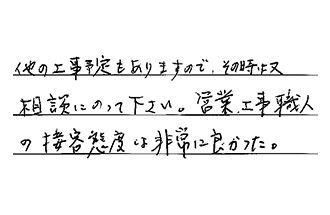 他の工事予定もありますので、その時は又
相談にのって下さい。営業、工事職人
の接客態度は非常に良かった。